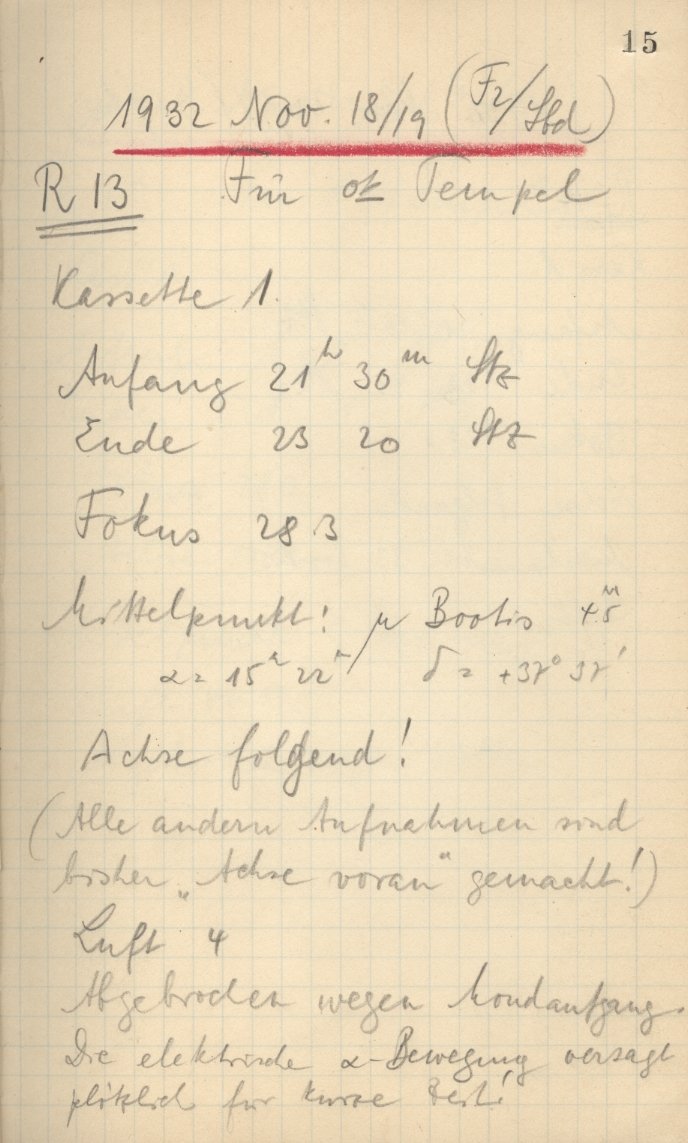 15
1932 Nov. 18/19 (Fz/Sbd)
R 13 Für ok Tempel
Kassette 1.
Anfang 21h 30m Stz
Ende 23 20 Stz
Fokus 28 3
Mittelpunkt: μ Bootis +5m
α = 15h 22m δ = +37° 37'
Achse folgend!
(Alle andern Aufnahmen sind
bisher „Achse voran“ gemacht!)
Luft 4
Abgebrochen wegen Mondaufgang.
Die elektrische α-Bewegung versagt
plötzlich für kurze Zeit!